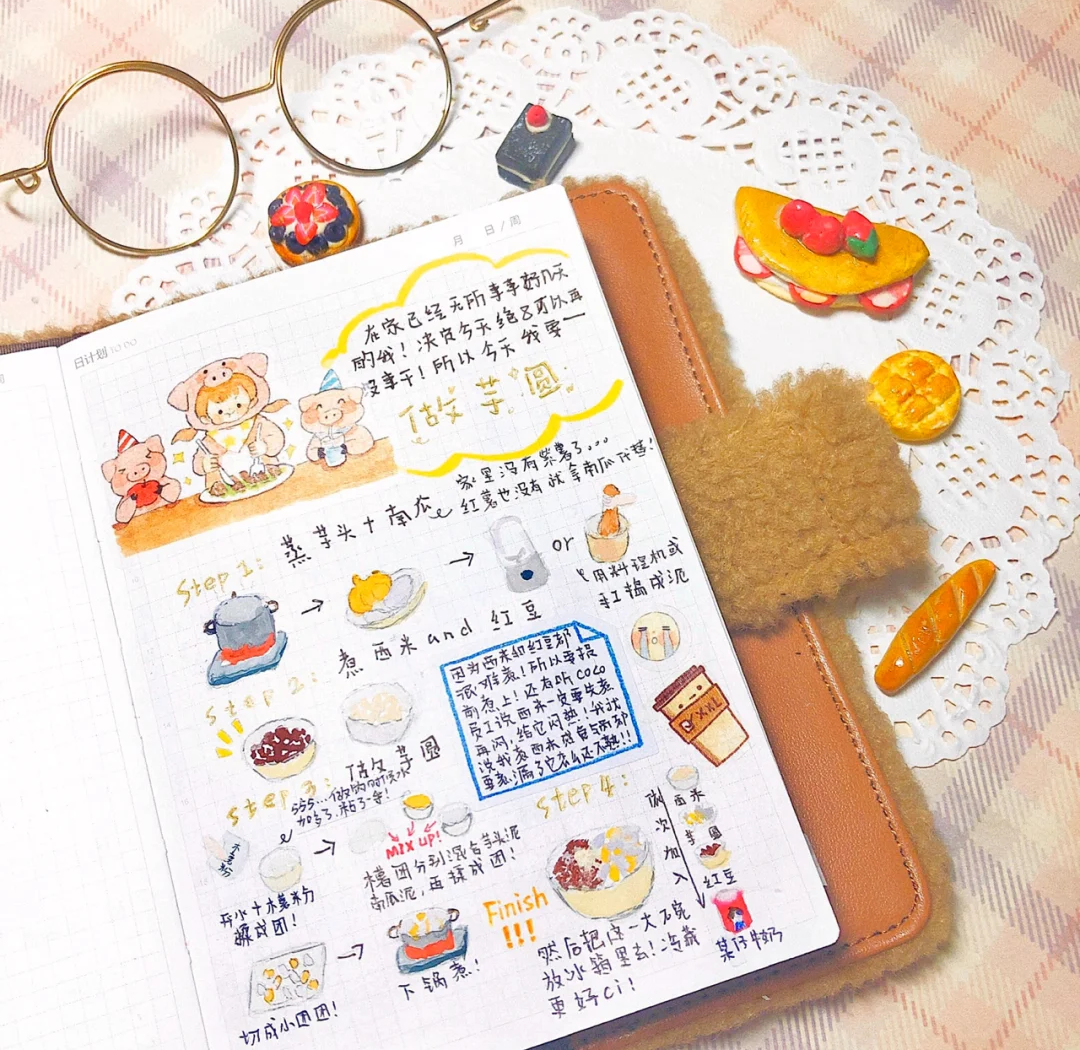 月 日/周
日计划 TO DO
在家已经无所事事好几天
的我!决定今天绝不可以再
没事干!所以今天我要一
做芋圆
家里没有紫薯了。。。
红薯也没有就拿南瓜代替!
Step 1: 蒸芋头+南瓜
or
用料理机或
手工捣成泥
Step 2: 煮西米 and 红豆
因为西米和红豆都
很难煮!所以要提
前煮上!还有听COCO
员工说西米一定要先煮
再闷,给它闷熟!!
Step 3: 做芋圆
555...做的时候水
加多了.粘了一手!
木薯粉
开水+木薯粉
揉成团!
MIX UP!
木薯团分别混合芋头泥
南瓜泥,再揉成团!
切成小团团!
下锅煮!
Finish
!!!
Step 4:
依次加入
西米
芋圆
红豆
某仔牛奶
XXL
然后把这一大碗
放冰箱里去!冷藏
更好Ci!